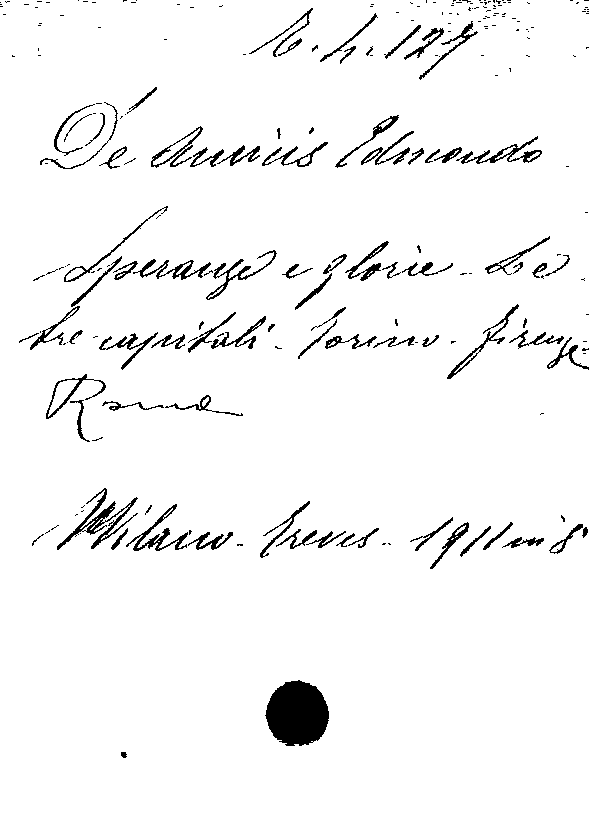 E. h. 127
De Amicis Edmondo
Speranze e glorie - Le
tre capitali - Torino - Firenze
Roma
Milano - Treves - 1911 in 8°